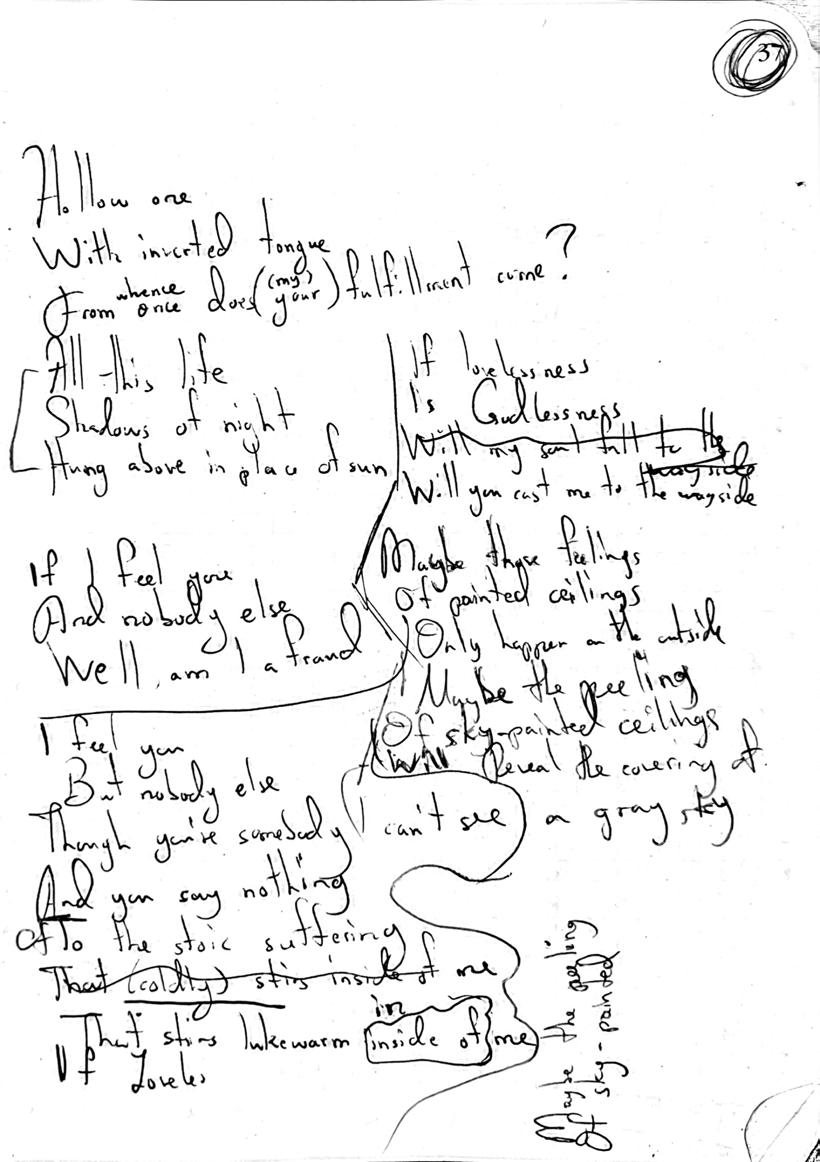 37
Hollow one
With inverted tongue
From whence once does (my) (your) fulfillment come?
All this life
Shadows of night
Hung above in place of sun
If I feel you
And nobody else
Well, am I a fraud
I feel you
But nobody else
Though you're somebody I can't see
And you say nothing
Of To the stoic suffering
That (coldly) stirs inside of me
in
That stirs lukewarm inside of me
If Loveles
If lovelessness
Is Godlessness
Will my soul fall to the
wayside
Will you cast me to the wayside
Maybe those feelings
Of painted ceilings
Only happen on the outside
Maybe the peeling
Of sky-painted ceilings
Will Reveal the covering of
a gray sky
Maybe the peeling
Of sky-painted